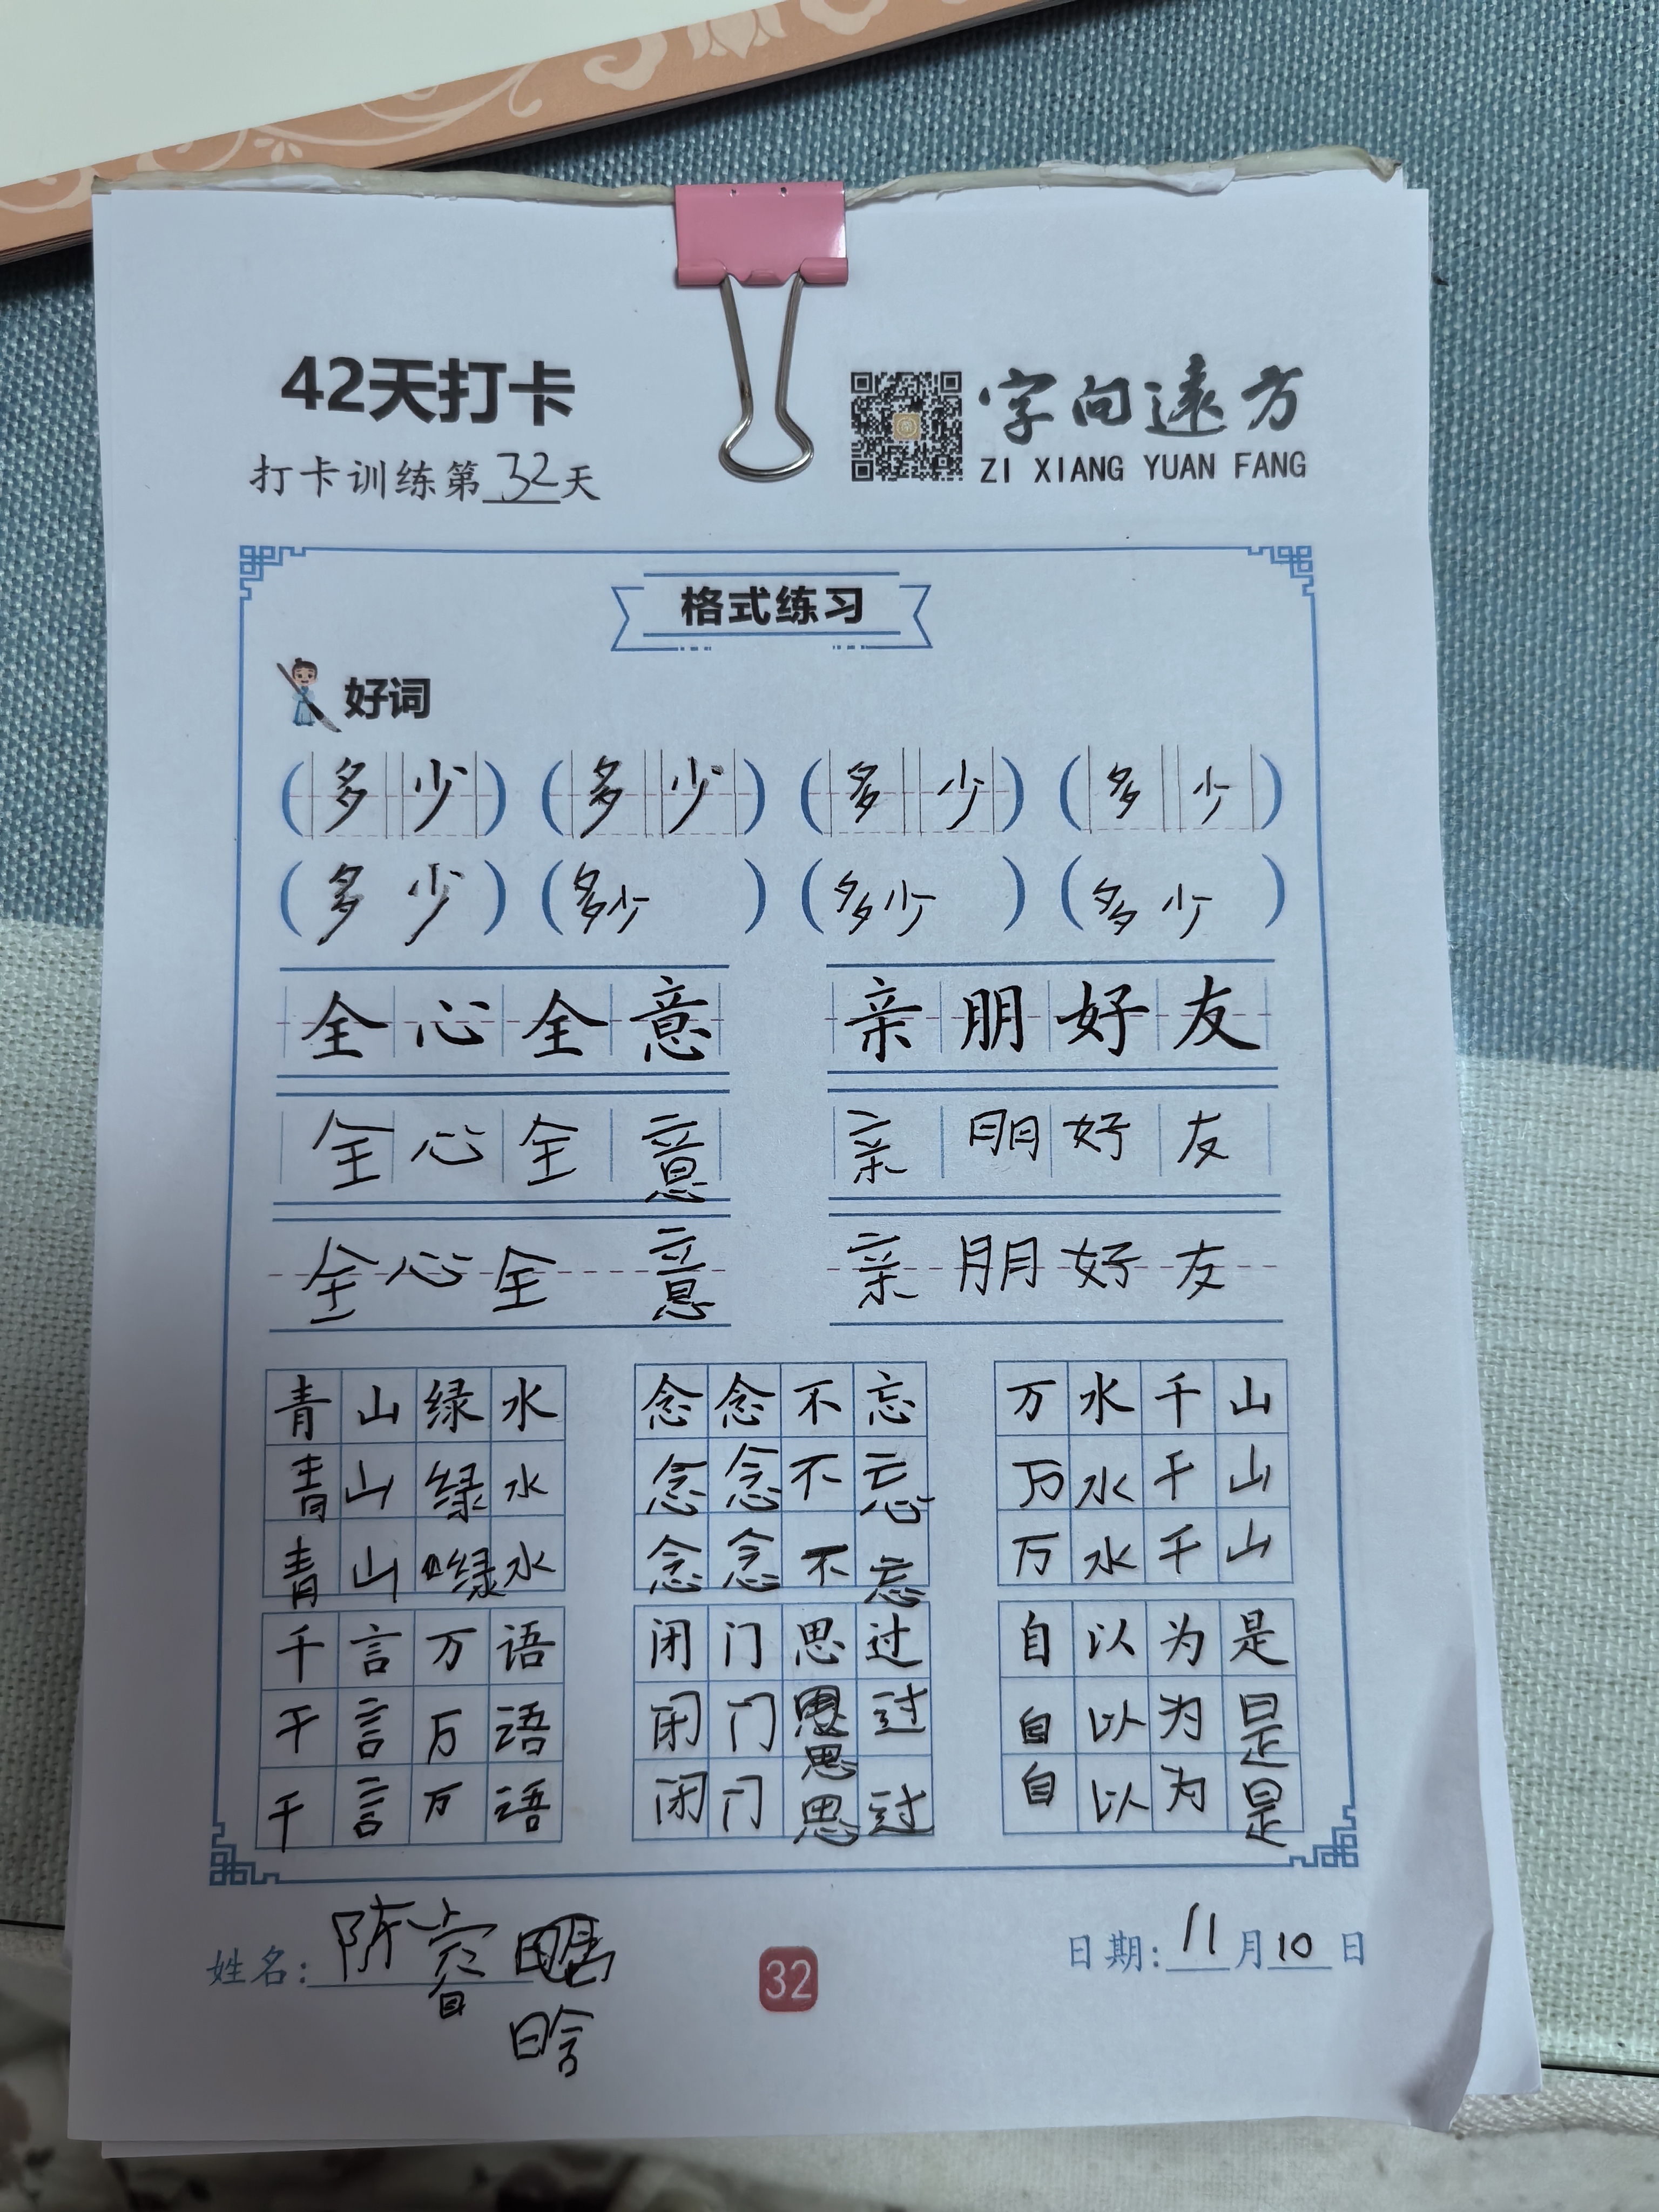 42天打卡
打卡训练第32天
字向远方
ZI XIANG YUAN FANG
格式练习
好词
(多少) (多少) (多少) (多少)
(多少) (多少) (多少) (多少)
全心全意 亲朋好友
全心全意 亲朋好友
全心全意 亲朋好友
青山绿水 念念不忘 万水千山
青山绿水 念念不忘 万水千山
青山绿水 念念不忘 万水千山
千言万语 闭门思过 自以为是
千言万语 闭门思过 自以为是
思
千言万语 闭门思过 自以为是
姓名: 陈
32
日期: 11月10日